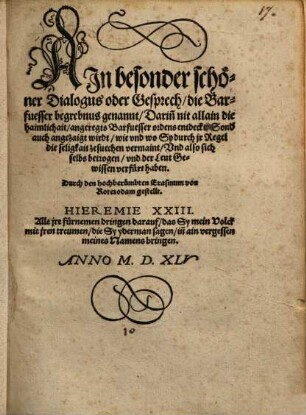 17.
AIn besonder schö-
ner Dialogus oder Gesprech/die Bar-
fuesser begrebnus genannt/Dariñ nit allain die
haimlichait/angeregts Barfuesser ordens entdeckt/Sond
auch angezaigt wirdt/wie vnd wo Sy durch jr Regel
die seligkait zesuechen vermaint/Vnd also sich
selbs betrogen/vnd der Leut Ge-
wissen verfürt haben.
Durch den hochberümbten Erasmum von
Roterodam gestelt.
HIEREMIE XXIII.
Alle jre fürnemen dringen darauf/das Sy mein Volck
mit jren treumen/die Sy yderman sagen/iñ ain vergessen
meines Namens bringen.
ANNO M. D. XLV
10